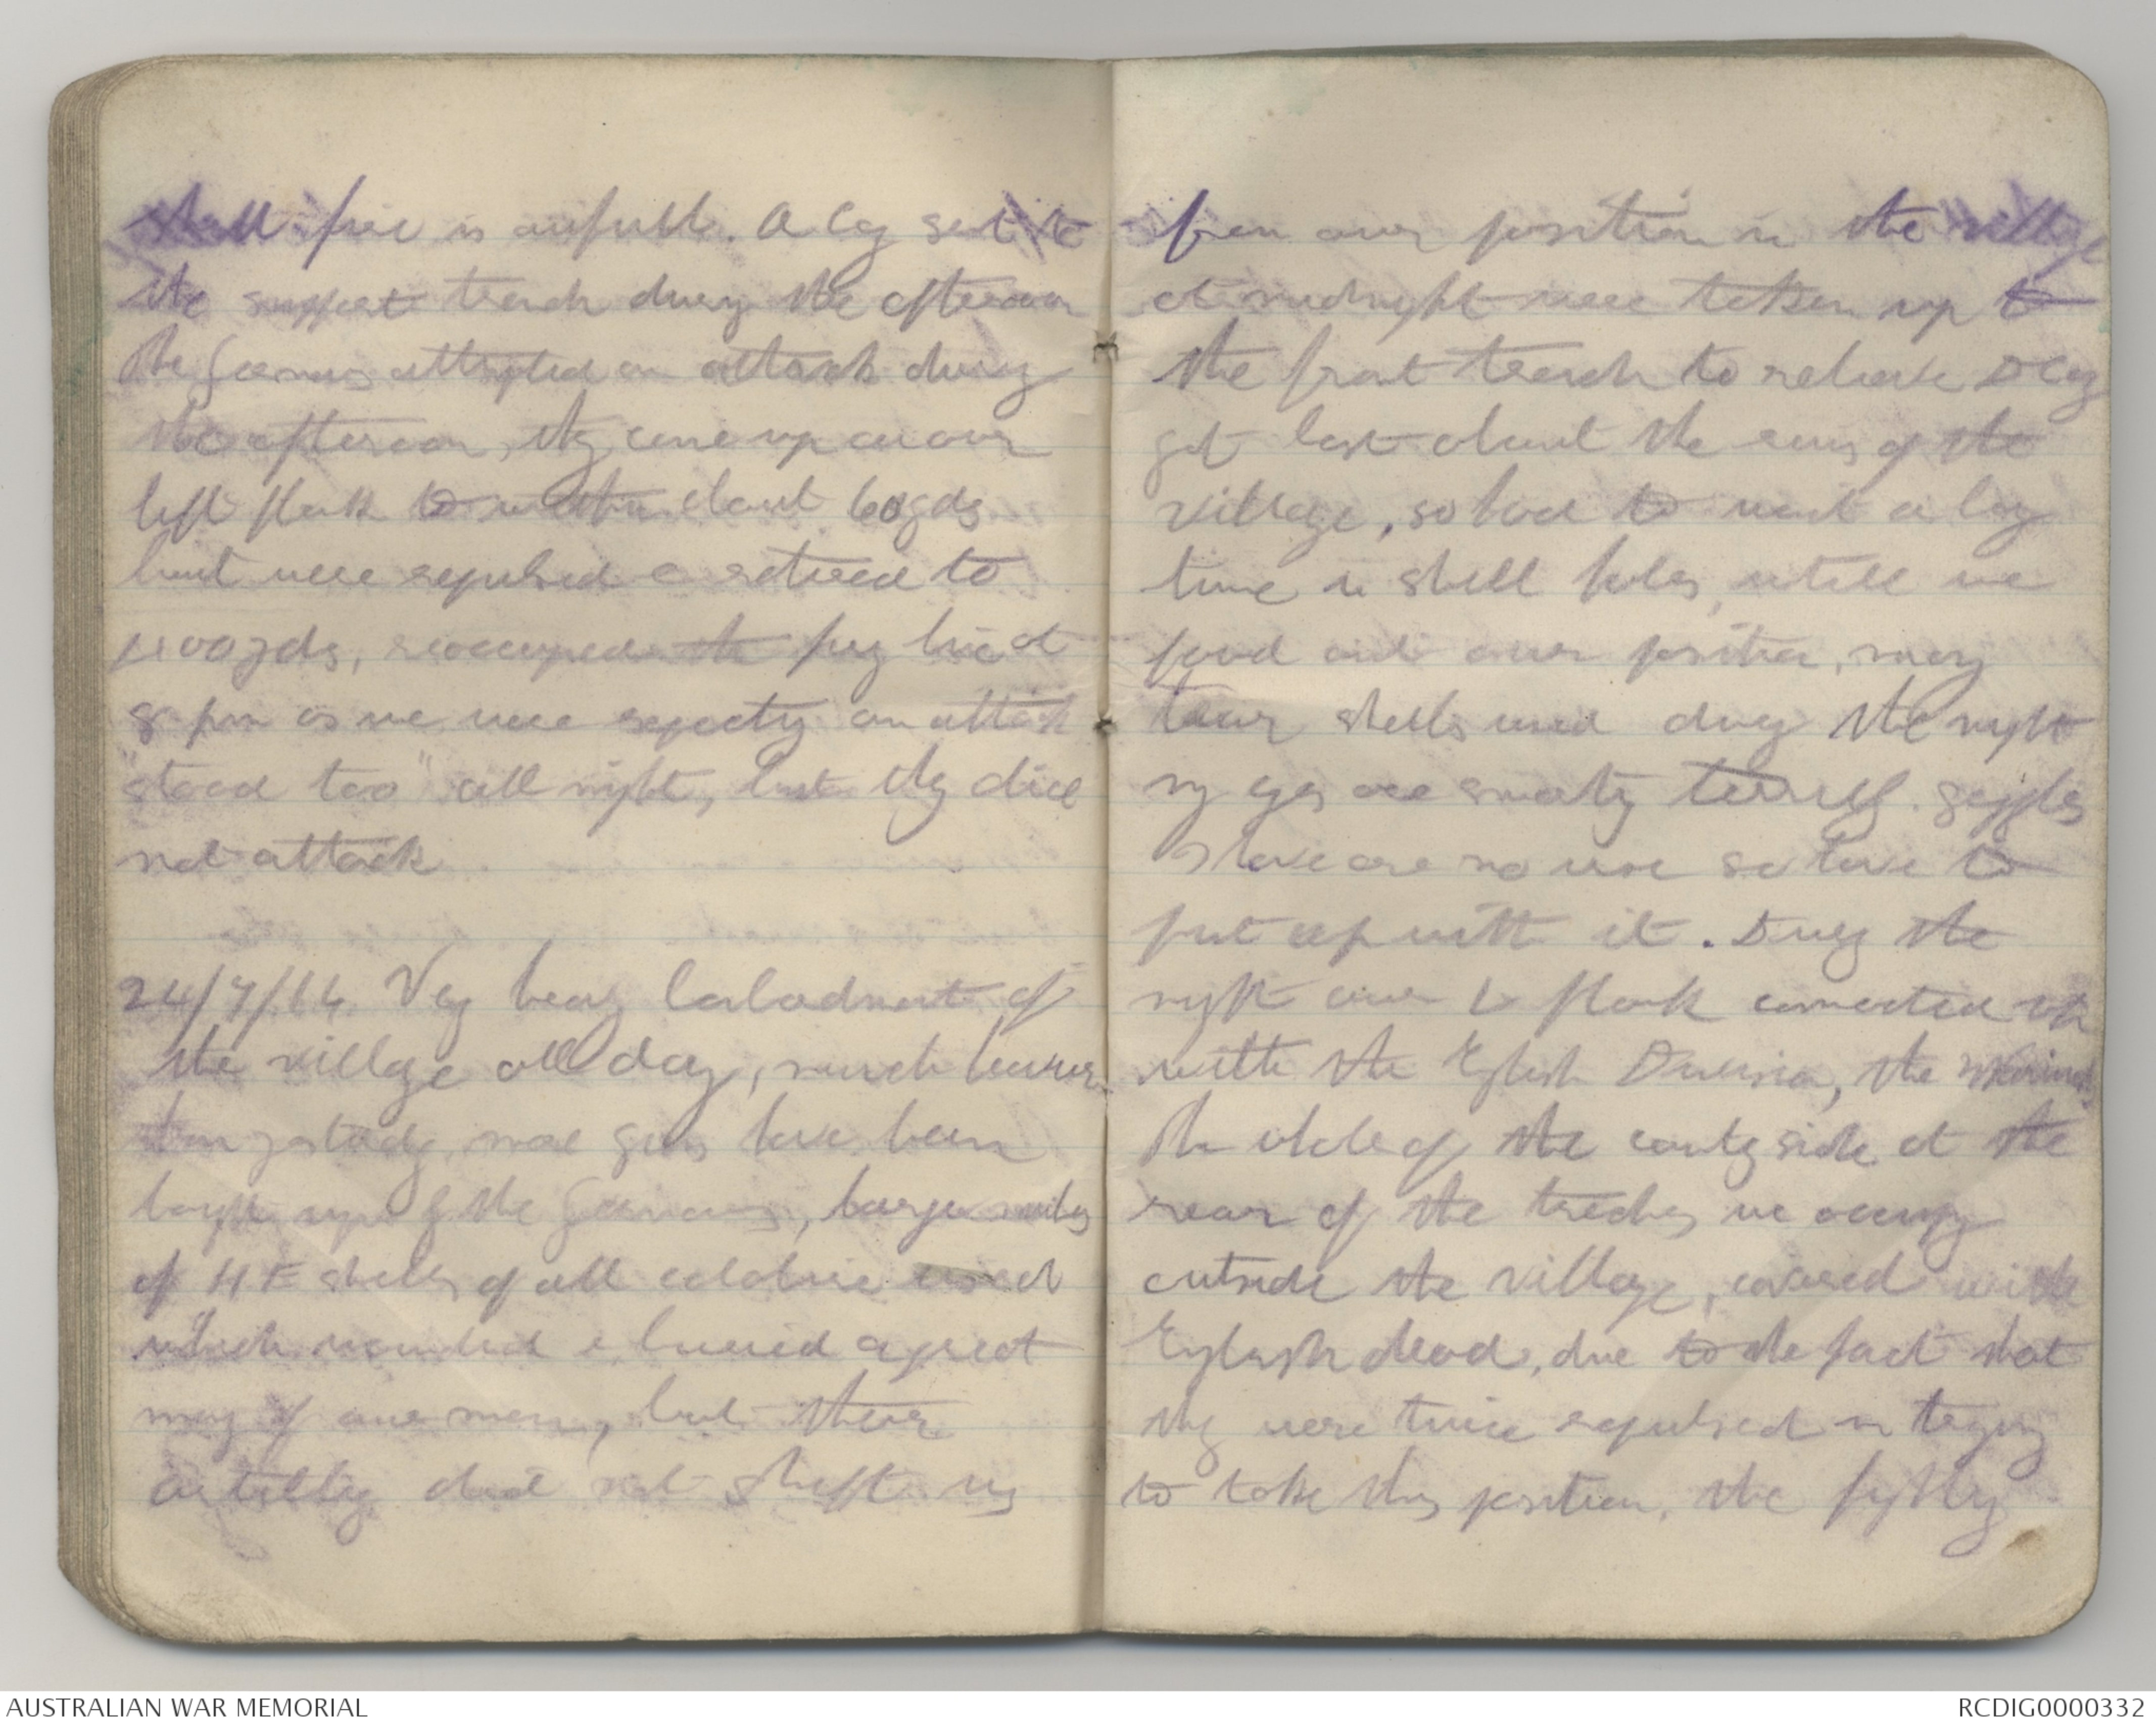 shell fire is awfull. A Coy sent to
the support trench durng the afternoon
The Germans attempted an attack during
the afternoon, they came up on our
left flank to within about 60 yds
but were repulsed & retired to
400 yds, reoccupied the firg line at
8 pm as we were expectg an attack
"stood too" all night, but they did
not attack
24/7/16. Vey heavy bombadment of
the village all day, much heavier
than yestady, more guns have been
bought up by the Germans, large
of HE shells of all calabre used
which wounded & buried a great
many of our men, but there
artillery did not shift us
from our position in the village
at midnight were taken up to
the front trench to relieve D Coy
got lost about the ruins of the
village, so had to wait a long
time in shell holes, untill we
found out our position, many
tear shells used durng the night
my eyes are smartg terribly. goggles
I have are no use so have to
put up with it. Durng the
night our L flank connected up
with the English Division, the
The whole of the county side at the
rear of the treches we occupy
outside the village, covered with
English dead, due to the fact that
they were twice repulsed in trying
to take this position, the
AUSTRALIAN WAR MEMORIAL
RCDIG0000332